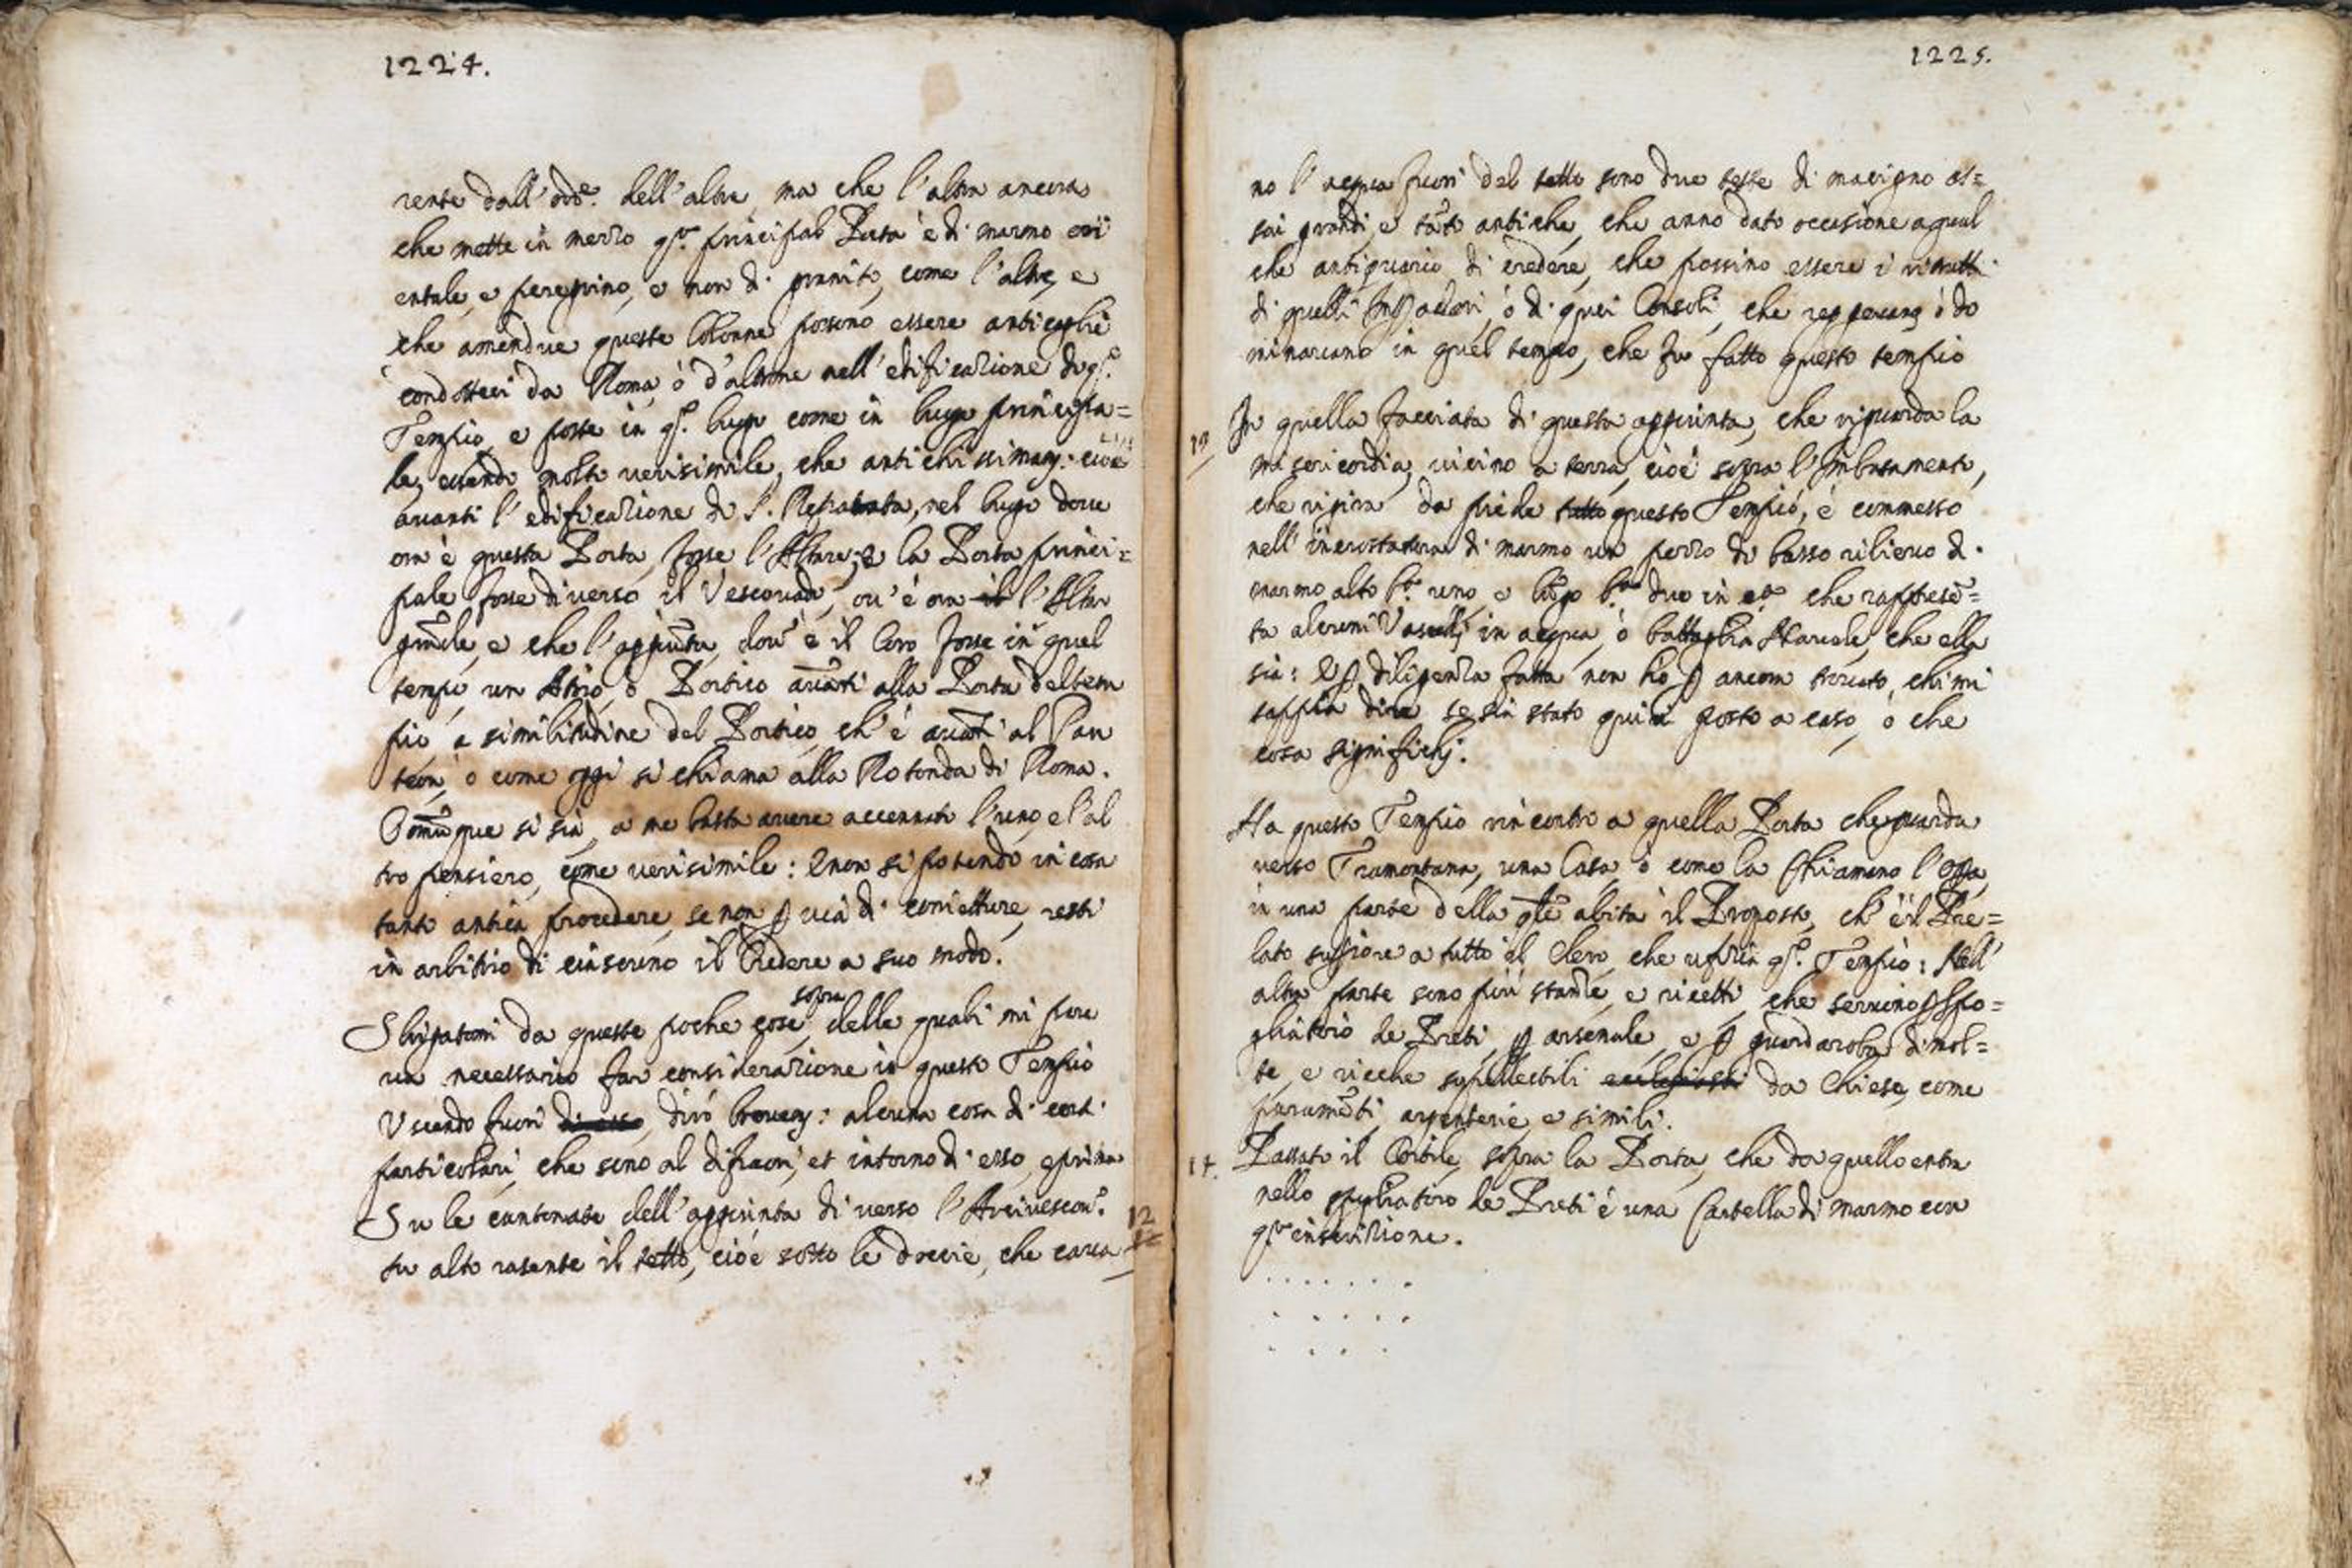 1224.
rente dall'ord.e dell'altre, ma che l'altra ancora
che mette in mezzo q.ta principal Porta è di marmo ori
entale, e peregrino, e non di granito, come l'altre, e
che amendue queste Colonne possono essere anticaglie
condottevi da Roma, ò d'altrone nell'edificazione di q.o
Tempio, e poste in q.o luogo come in luogo principa=
le, essendo molto verisimile, che antichissimam.: cioè
avanti l'edificazione di S. Reparata, nel luogo dove
ora è questa Porta, fosse l'Altare; e la Porta princi=
pale fosse diverso il Vescovado, ov'è ora il l'Altar
grãde, e che l'aggiũta, dov'è il Coro fosse in quel
tempo un Atrio, ò Portico avãti alla Porta del tem
pio a similitudine del Portico, ch'è avãti al Pan
teon, o come oggi si chiama alla Rotonda di Roma.
Comũque si sia, a me basta avere accennato l'uno, e l'al
tro pensiero, come verisimile: e non si potendo in cosa
tanto antica procedere, se non p via di conietture, resti
in arbitrio di ciascuno il Credere a suo modo.
sopra
Sbrigatomi da queste poche cose, delle quali mi pare
va necessario far considerazione in questo Tempio
Uscendo fuori di esso, dirò brevem.: alcuna cosa di certi
particolari, che sono al difuori, et intorno di esso, e prima
Su le cantonate dell'aggiunta di verso l'Arcivescov.o
12
su alto rasente il tetto, cioè sotto le docce, che cava
1225.
no l'acqua fuori del tetto sono due teste di macigno as=
sai grandi, e tãto antiche, che anno dato occasione a qual
che antiquario di credere, che possino essere i ritratti
di quelli Imp.adori, ò di quei Consoli, che reggevano, ò do
minavano in quel tempo, che fu fatto questo tempio
13
In quella facciata di questa aggiunta, che riguarda la
misericordia, vicino a terra, cioè sopra l'Imbasamento,
che rigira da piede tutto questo Tempio, è commesso
nell'incrostatura di marmo un pezzo di basso rilievo di
marmo alto b.a uno, e lũgo b.a due in c.a che rappresẽ=
ta alcuni Vascelli in acqua, ò battaglia Navale, che ella
sia: e p diligenza fatta non hò p ancora trovato, chi mi
sappia dire se sia stato quivi posto a caso, ò che
cosa significhi.
Ha questo Tempio rincontro a quella Porta che guarda
verso Tramontana, una Casa, ò come la Chiamano l'Opa,
in una parte della qle abita il Proposto, ch'è il Pre=
lato supiore a tutto il Clero, che ufizia q.o Tempio: Nell'
altra parte sono più stanze, e ricetti, che servono p Spo=
gliatoio de Preti, p arsenale, e p guardaroba di mol=
te, e ricche supellettili ecclesiasti da Chiesa, come
paramẽti, argenterie, e simili.
14.
Passato il Cortile, sopra la Porta, che da quello entra
nello spogliatoio de Preti è una Cartella di marmo con
q.ta inscrizione.
. . . . . . .
. . . . .
. . . .